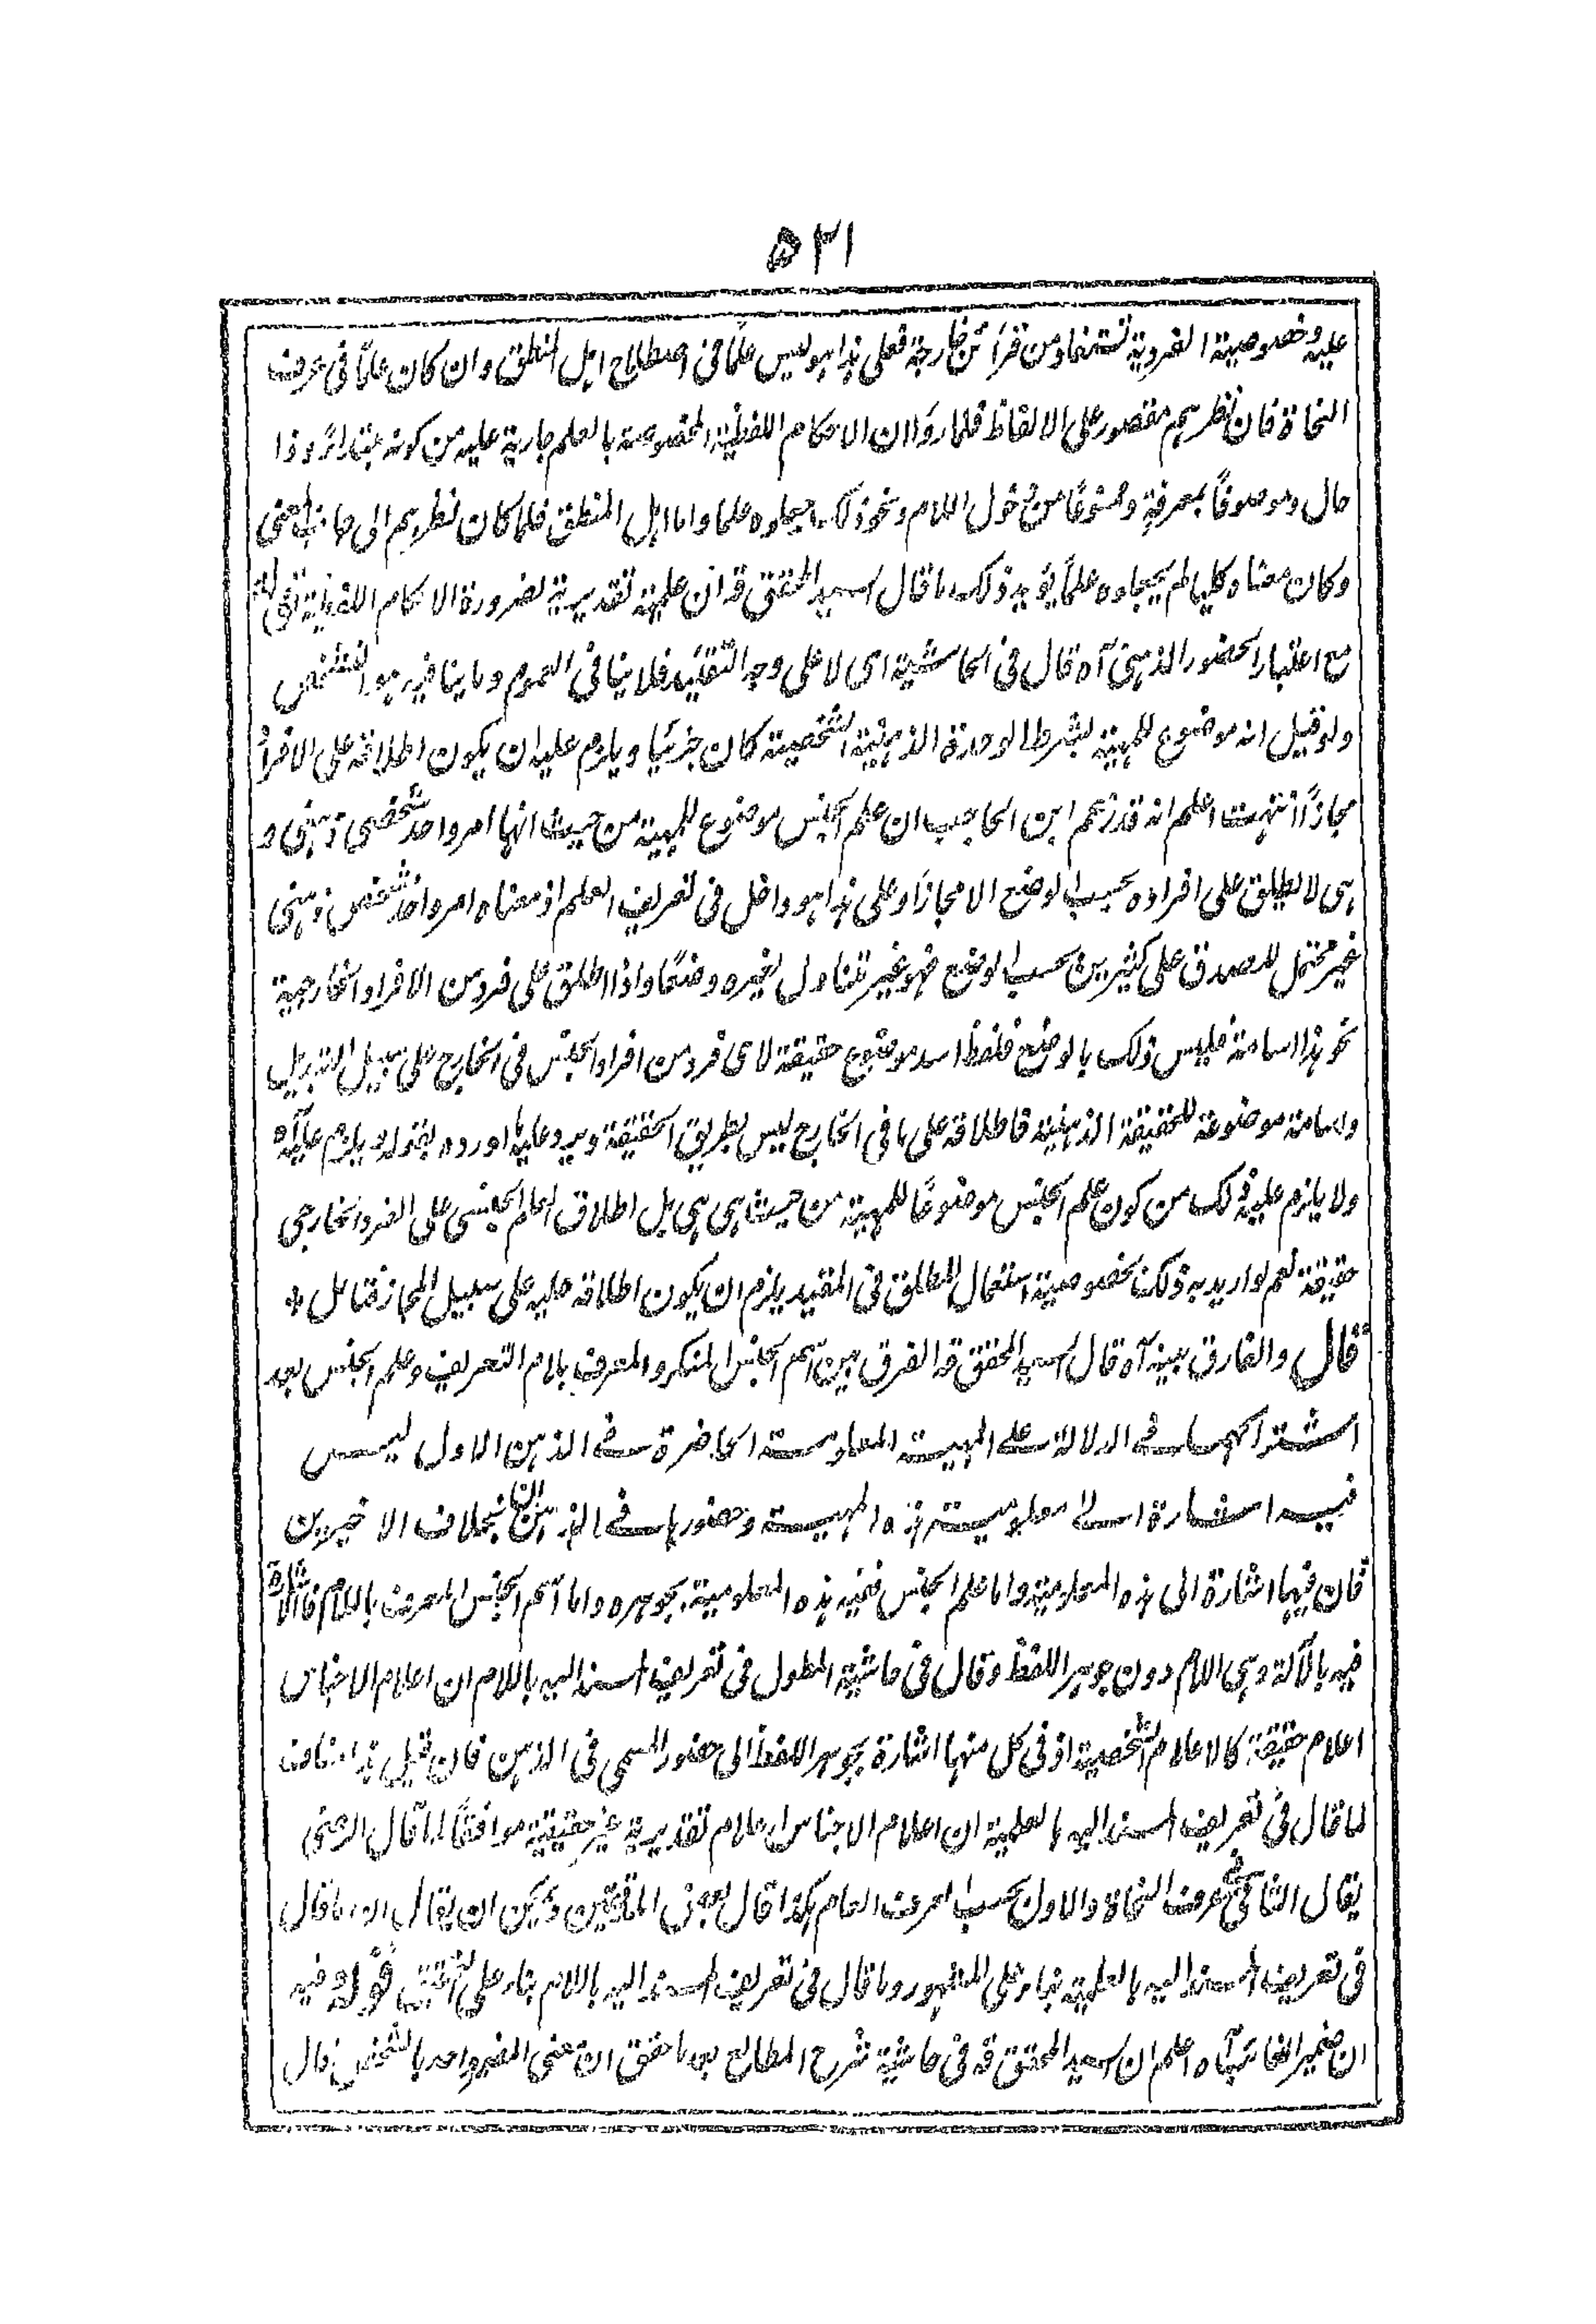 ٥٢١
عليه وخصوصية الفردية تستفاد من قرائن خارجة فعلى هذا هو ليس علماً فى اصطلاح اهل المنطق وان كان علماً فى عرف
النحاة فان نظرهم مقصور على الالفاظ فلما رواا ان الاحكام اللفظية المخصوصة بالعلم جارية عليه من كونه مبتدأ و ذا
حال وموصوفاً بمعرفة وممنوعًا من دخول اللام ونحو ذلك جعلوه علما واما اهل المنطق فلما كان نظرهم الى جانب المعنى
وكان معناه كليا لم يجعلوه علماً يؤيد ذلك ما قال السيد المحقق قه ان علميته تقديرية لضرورة الاحكام اللفظية
مع اعتبار الحضور الذهنى آه قال فى الحاشية اى لا على وجه التقييد فلا ينافى العموم وما ينافيه هو التشخص
ولو قيل انه موضوع للمهية بشرط الوحدة الذهنية الشخصية كان جزئيا ويلزم عليه ان يكون اطلاقه على الافراد
مجازاً انتهت اعلم انه قد زعم ابن الحاجب ان علم الجنس موضوع للمهية من حيث انها امر واحد شخصى ذهنى و
هى لا يطلق على افراده بحسب الوضع الا مجازاً وعلى هذا هو داخل فى تعريف العلم اذ معناه امر واحد شخص ذهنى
غير محتمل للصدق على كثيرين بحسب الوضع فهو غير متناول لغيره وضعًا واذا اطلق على فرد من الافراد الخارجية
نحو هذا اسامة فليس ذلك بالوضع فلفظ اسد موضوع حقيقة لاى فرد من افراد الجنس فى الخارج على سبيل التبديل
واسامة موضوعة للحقيقة الذهنية فاطلاقه على ما فى الخارج ليس بطريق الحقيقة ويرد عليه ما اورده بقوله ويلزم عليه آه
ولا يلزم عليه ذلك من كون علم الجنس موضوعًا للمهية من حيث هى هى بل اطلاق العلم الجنسى على الفرد الخارجى
حقيقة نعم لو اريد به ذلك بخصوصية استعمال المطلق فى المقيد يلزم ان يكون اطلاقه عليه على سبيل المجاز فتامل *
قال والفارق بينه آه قال السيد المحقق قه الفرق بين اسم الجنس المنكر والمعرف بلام التعريف وعلم الجنس بعد
اشتراكهما فى الدلالة على المهية المعلومة الحاضرة فى الذهن الاول ليس
فيه اشارة الى معلومية هذه المهية وحضورها فى الذهن بخلاف الاخيرين
فان فيهما اشارة الى هذه المعلومية واما علم الجنس ففيه هذه المعلومية بجوهره واما اسم الجنس المعرف باللام فالاشارة
فيه بالآلة وهى اللام دون جوهر اللفظ وقال فى حاشية المطول فى تعريف المسند اليه باللام ان اعلام الاجناس
اعلام حقيقة كالاعلام الشخصية اذ فى كل منها اشارة بجوهر اللفظ الى حضور المسمى فى الذهن فان قيل هذا مناف
لما قال فى تعريف المسند اليه بالعلمية ان اعلام الاجناس اعلام تقديرية غير حقيقية موافقًا لما قال الرضى
يقال الثانى عرف النحاة والاول بحسب العرف العام هكذا قال بعض المدققين ويمكن ان يقال ان ما قال
فى تعريف المسند اليه بالعلمية بناء على المشهور وما قال فى تعريف المسند اليه باللام بناء على التحقيق قوله وفيه
ان ضمير الغائب آه اعلم ان السيد المحقق قه فى حاشية شرح المطالع بعد ما حقق ان معنى المفرد واحد بالشخص قال